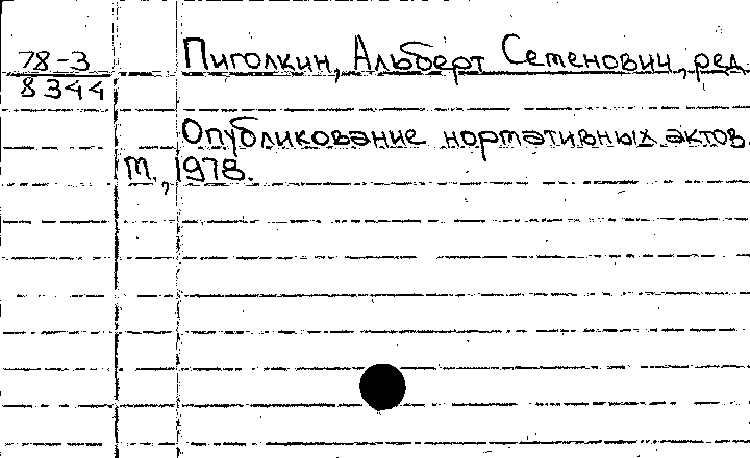 78-3
8344
Пиголкин, Альберт Семенович, ред.
Опубликование нормативных актов.
М., 1978.